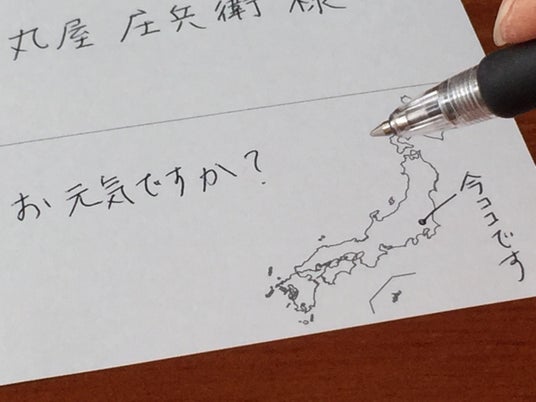 丸屋 庄兵衛 様
お元気ですか？
今ココです